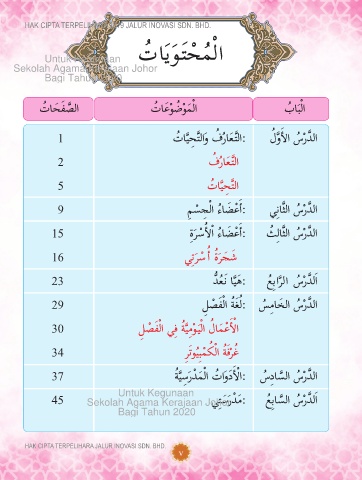 HAK CIPTA TERPELIHARA 2019 JALUR INOVASI SDN. BHD.
الْمُحْتَوَيَاتُ
Untuk Kegunaan
Sekolah Agama Kerajaan Johor
Bagi Tahun 2020
الْبَابُ الْمَوْضُوْعَاتُ الصَّفَحَاتُ
الدَّرْسُ الأَوَّلُ :التَّعَارُفُ وَالتَّحِيَّاتُ 1
التَّعَارُفُ 2
التَّحِيَّاتُ 5
الدَّرْسُ الثَّانِي :أَعْضَاءُ الْجِسْمِ 9
الدَّرْسُ الثَّالِثُ :أَعْضَاءُ الْأُسْرَةِ 15
شَجَرَةُ أُسْرَتِي 16
اَلدَّرْسُ الرَّابِعُ :هَيَّا نَعُدُّ 23
الدَّرْسُ الخَامِسُ :لُغَةُ الْفَصْلِ 29
الْأَعْمَالُ الْيَوْمِيَّةُ فِي الْفَصْلِ 30
غُرْفَةُ الْكُمْبِيُوتَرِ 34
الدَّرْسُ السَّادِسُ :الْأَدَوَاتُ الْمَدْرَسِيَّةُ 37
اَلدَّرْسُ السَّابِعُ :مَدْرَسَتِي 45
Untuk Kegunaan
Sekolah Agama Kerajaan Johor
Bagi Tahun 2020
HAK CIPTA TERPELIHARA JALUR INOVASI SDN. BHD.
٧